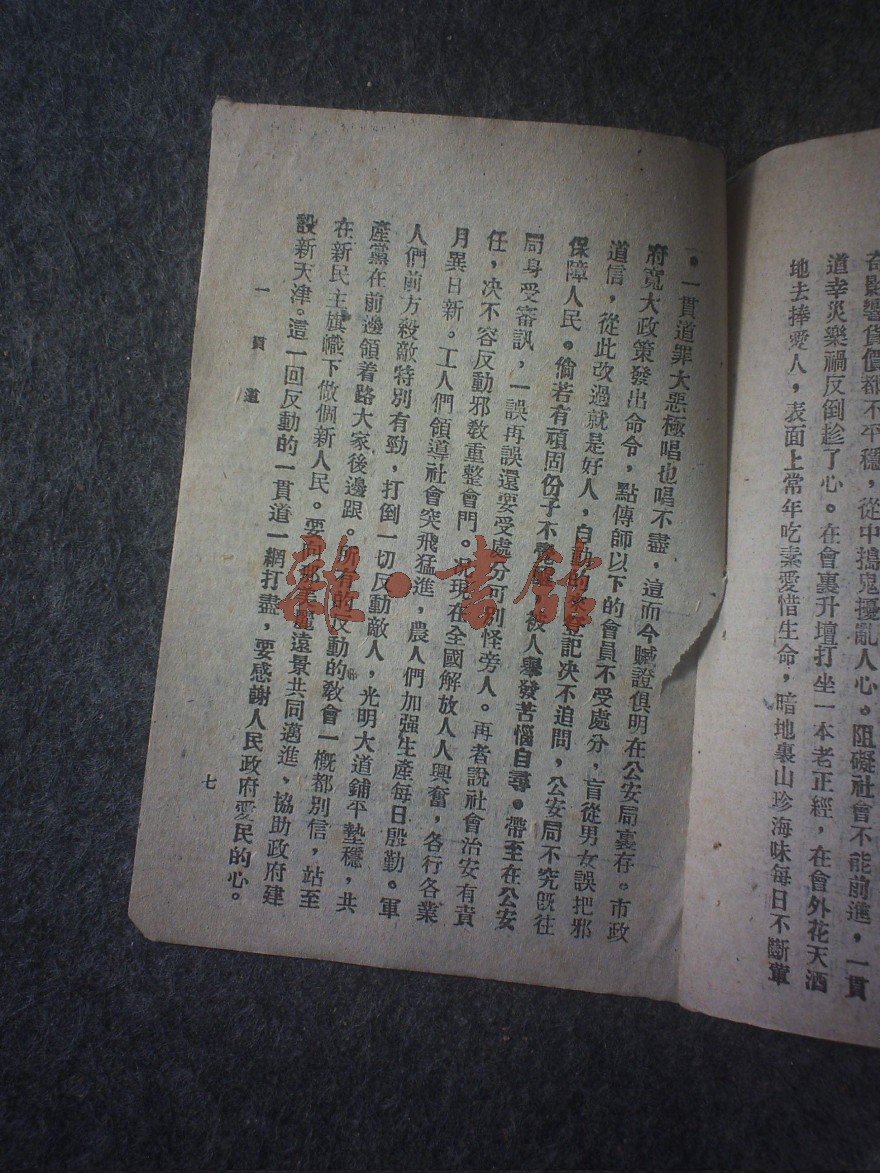 奇影響貨價都不平穩，從中搗鬼擾亂人心。阻礙社會不能前進，一貫
道幸災樂禍反倒趁了心。在會裏升壇打坐一本老正經，在會外花天酒
地去捧愛人，表面上常年吃素愛惜生命，暗地裏山珍海味每日不斷葷
。一貫道罪大惡極唱也唱不盡，這而今贓證俱明在公安局裏存。市政
府寬大政策發出命令，點傳師以下的會員不受處分，盲從男女誤把邪
道信，從此改過就是好人，自動的來登記决不追問，公安局不究旣往
保障人民。倘若有頑固份子不 被人舉發苦惱自尋。帶至在公安
局身受審訊，一誤再誤還要受處分可別怪旁人。再者說社會治安有責
任，决不容反動邪敎重整會門。况現在全國解放人人興奮，各行各業
月異日新。工人們領導社會突飛猛進，農人們加强生產每日殷勤。軍
人們前方殺敵特別有勁，打倒一切反動敵人，光明大道鋪平墊穩，共
產黨在前邊領着路大家後邊跟。所有的反動的敎會一槪都別信，站至
在新民主旗幟下做個新人民。要向那美麗遠景共同邁進，協助政府建
設新天津。這一回反動的一貫道一網打盡，要感謝人民政府愛民的心。
一貫道
七
雜·書館